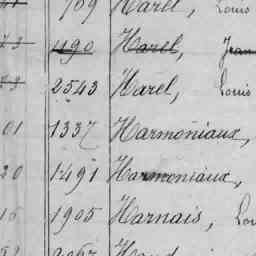 769 Harel, Louis
73 1190 Harel, Jean
73 2543 Harel, Louis
01 1337 Harmoniaux,
20 1491 Harmoniaux,
16 1905 Harnais, Lou